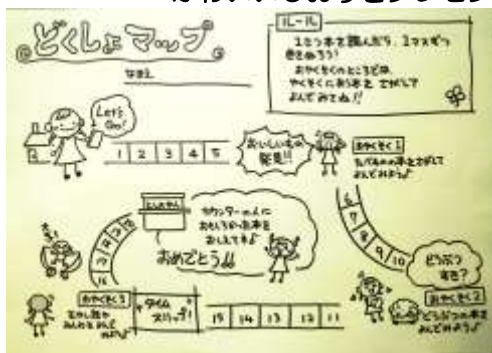 どくしょマップ
なまえ
ルール
1さつ本を読んだら、1マスずつ
おやくそくのところでは、
やくそくにあう本を さがして
よんでみてね!!
Let's
Go!
1 2 3 4 5
おいしいもの
発見!!
おやくそく1
たべものの本をさがして
よんでみよう♪
6 7 8 9 10
どうぶつ
すき?
おやくそく2
どうぶつの本を
よんでみよう♪
15 14 13 12 11
タイム
スリップ!
おやくそく3
としょかん
カウンターの人に
おもしろかった本を
おしえてね♪
おめでとう!!